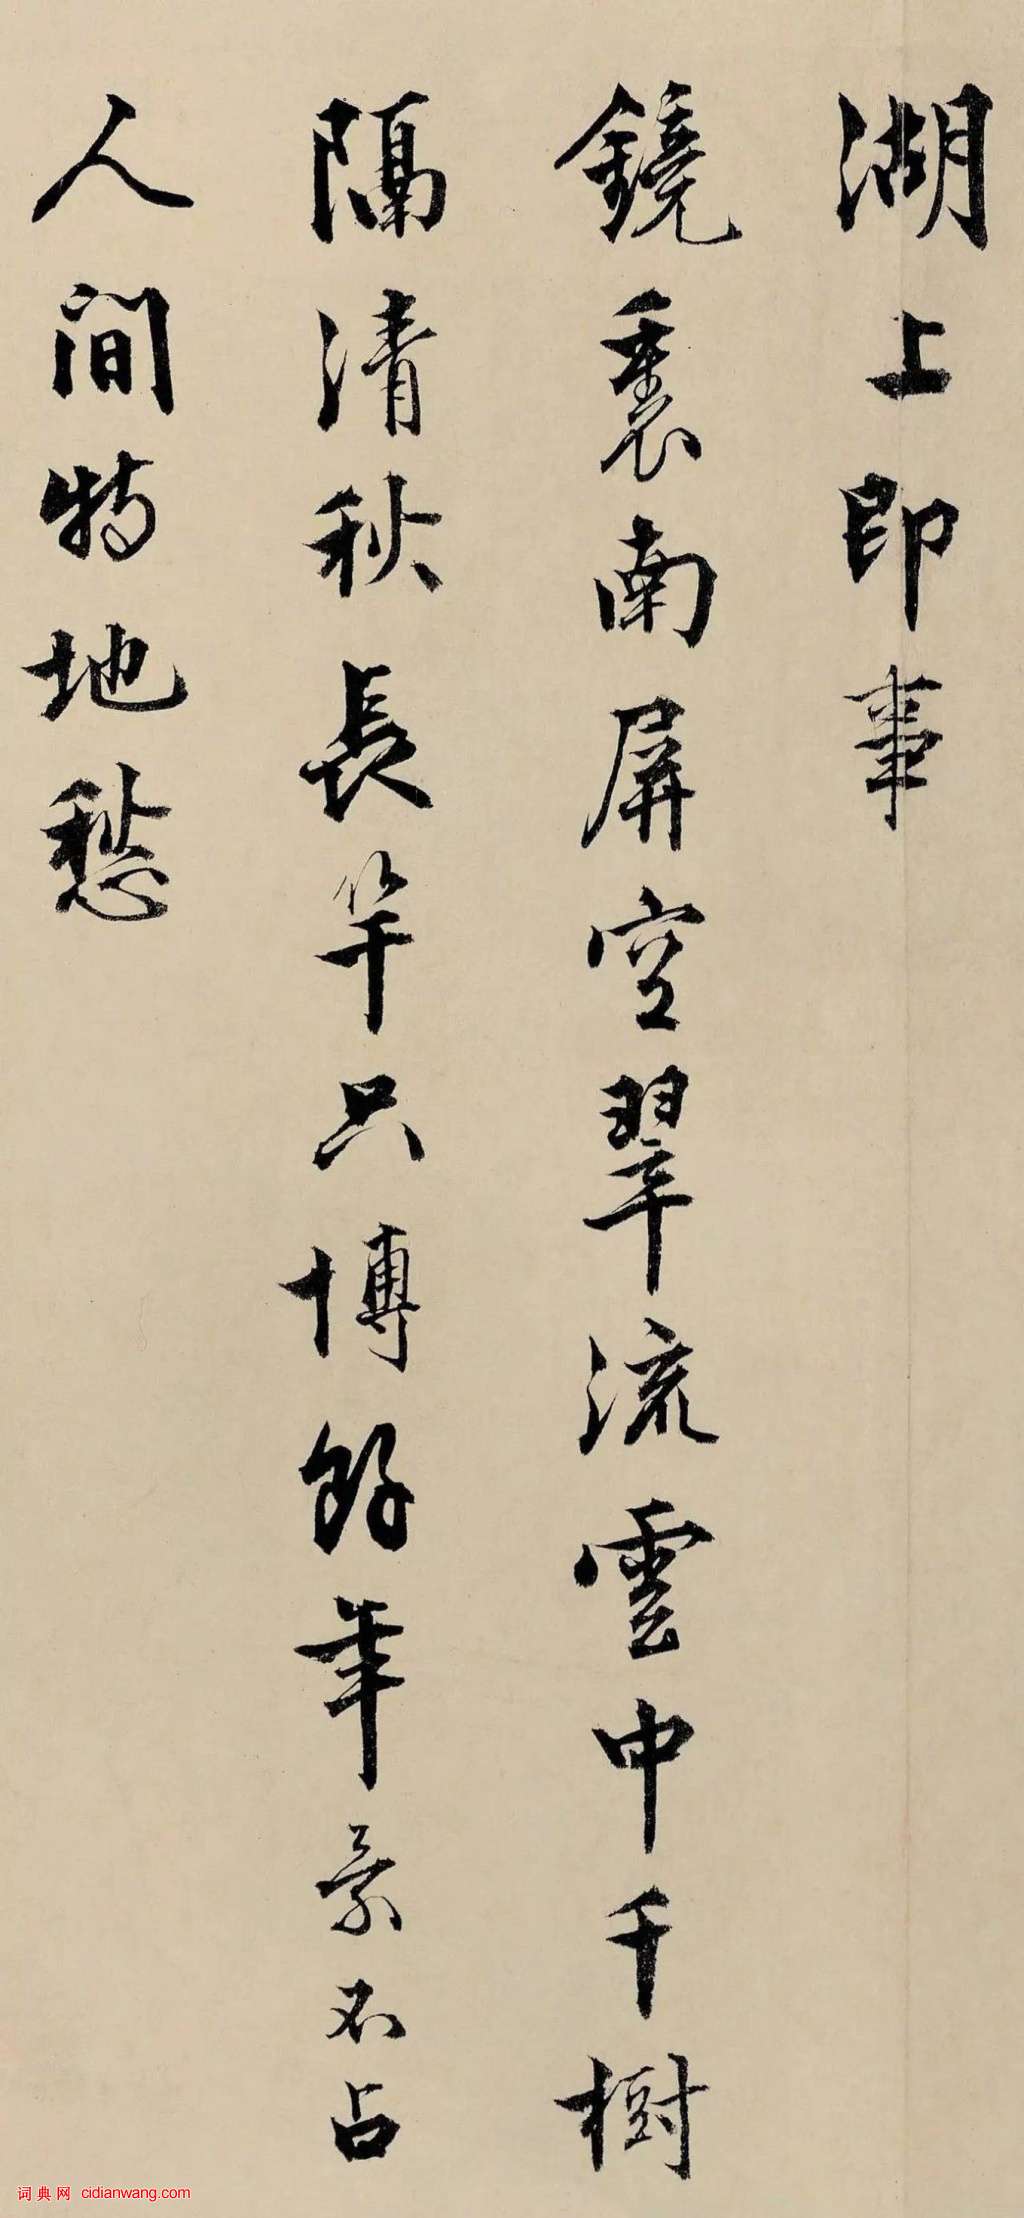 湖上即事
鏡裏南屏空翠流雲中千樹
隔清秋長竿只博餘年景不占
人間特地愁
词典网 cidianwang.com